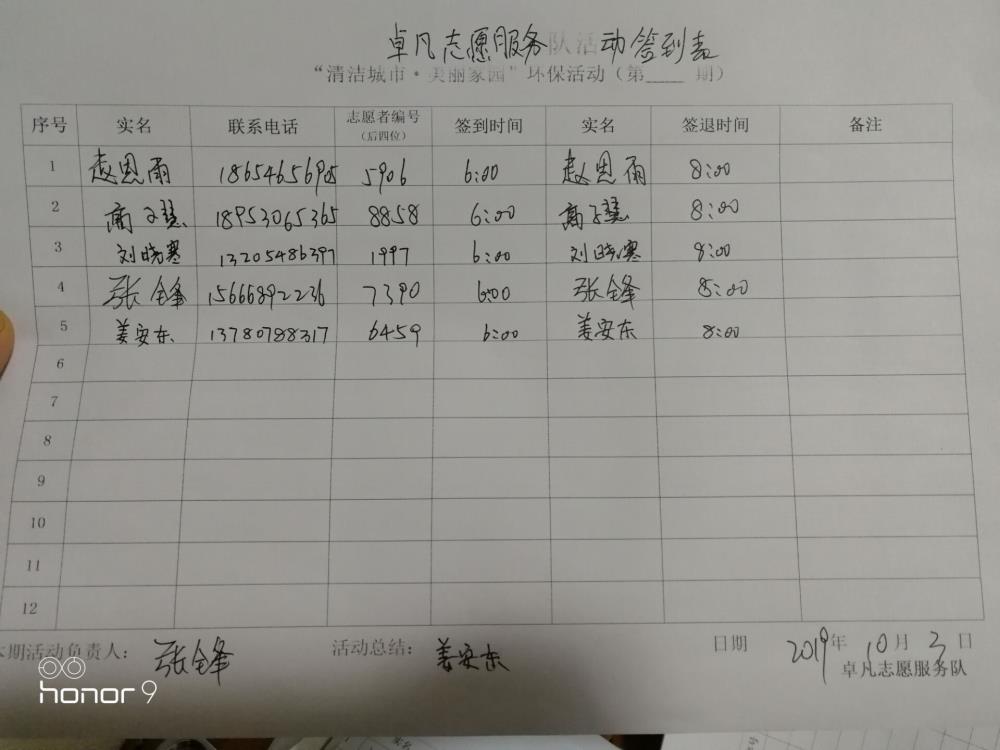 卓凡志愿服务队活动签到表
“清洁城市·美丽家园”环保活动（第____期）
序号 实名 联系电话 志愿者编号（后四位） 签到时间 实名 签退时间 备注
1 赵恩雨 18654656905 5906 6:00 赵恩雨 8:00
2 高子慧 18953065365 8858 6:00 高子慧 8:00
3 刘晓寒 13205486397 1997 6:00 刘晓寒 8:00
4 张锋 15666892236 7390 6:00 张锋 8:00
5 姜安东 13780788317 6459 6:00 姜安东 8:00
6
7
8
9
10
11
12
本期活动负责人： 张锋 活动总结： 姜安东 日期 2019年10月3日
卓凡志愿服务队
honor 9